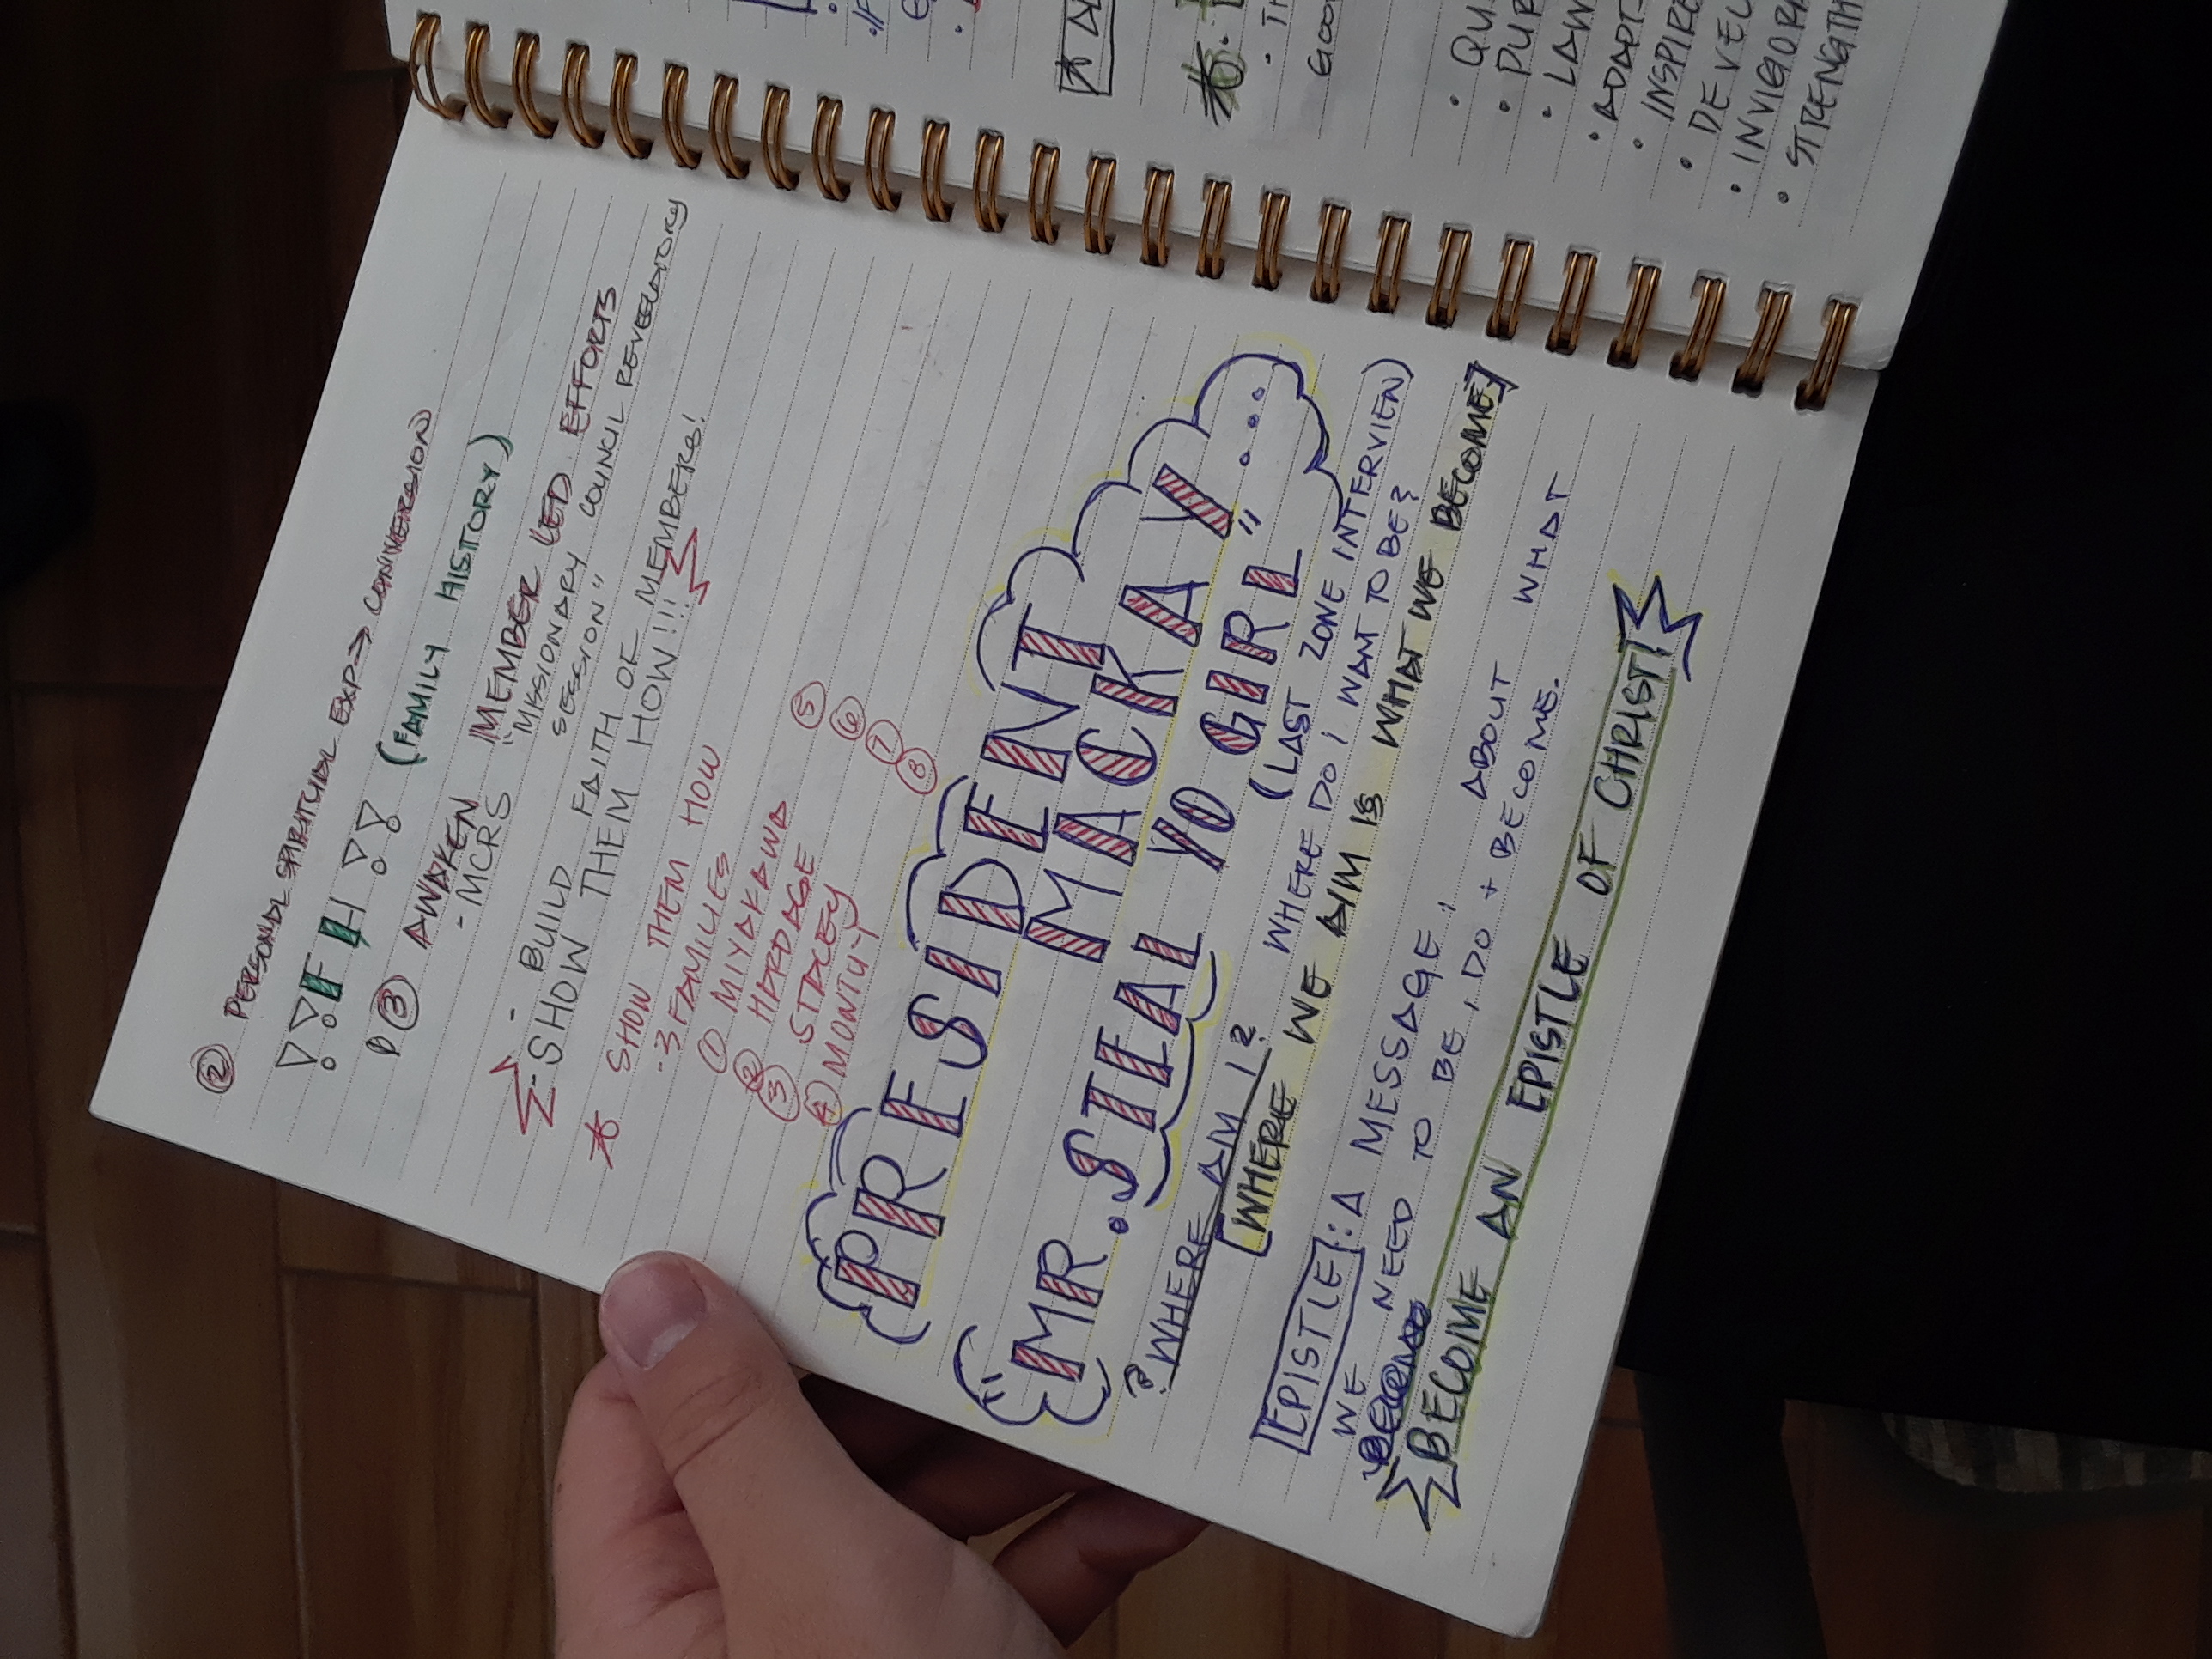 ② PERSONAL SPIRITUAL EXP → CONVERSION
!! FH !! (FAMILY HISTORY)
③ AWAKEN MEMBER LED EFFORTS
- MCRS "MISSIONARY COUNCIL REVELATORY
SESSION"
- BUILD FAITH OF MEMBERS!
- SHOW THEM HOW!!!
* SHOW THEM HOW
- 3 FAMILIES
① MIYAKAWA ⑤
② HARDAGE ⑥
③ STACEY ⑦
④ ⑧
PRESIDENT
MACKAY...
"MR. STEAL YO GIRL"
(LAST ZONE INTERVIEW)
? WHERE AM I? WHERE DO I WANT TO BE?
[WHERE WE AIM IS WHAT WE BECOME]
EPISTLE: A MESSAGE, ABOUT WHAT
WE NEED TO BE, DO + BECOME.
BECOME AN EPISTLE OF CHRIST!
* 
GOO
• QU
• PUR
• LAW
• ADAPT
• INSPIRE
• DEVEL
• INVIGOR
• STRENGTH